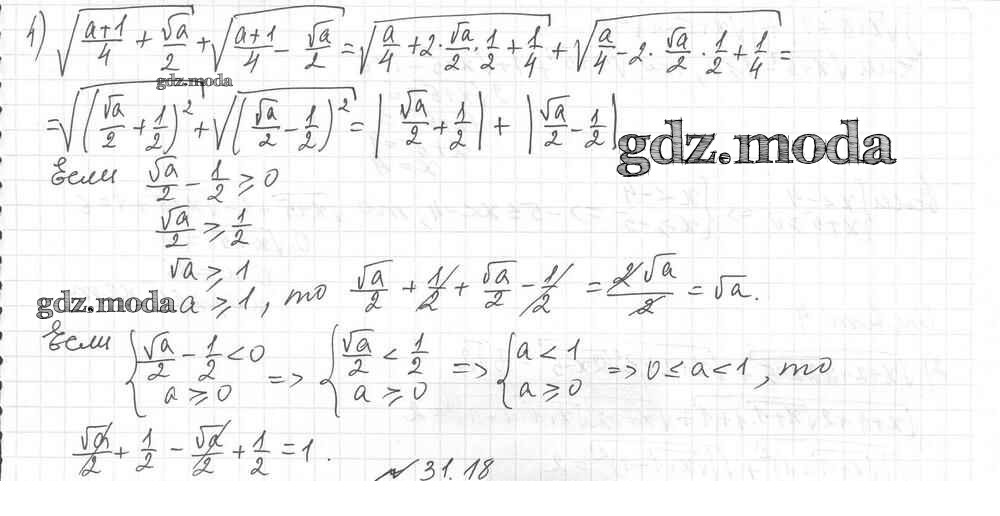 4) √((a+1)/4 + √a/2) + √((a+1)/4 − √a/2) = √(a/4 + 2·√a/2·1/2 + 1/4) + √(a/4 − 2·√a/2·1/2 + 1/4) =
gdz.moda
= √((√a/2 + 1/2)²) + √((√a/2 − 1/2)²) = |√a/2 + 1/2| + |√a/2 − 1/2|
gdz.moda
Если √a/2 − 1/2 ⩾ 0
√a/2 ⩾ 1/2
√a ⩾ 1
gdz.moda
a ⩾ 1, то √a/2 + 1/2 + √a/2 − 1/2 = 2√a/2 = √a.
Если { √a/2 − 1/2 < 0, a ⩾ 0 => { √a/2 < 1/2, a ⩾ 0 => { a < 1, a ⩾ 0 => 0 ≤ a < 1, то
√a/2 + 1/2 − √a/2 + 1/2 = 1.
№ 31.18